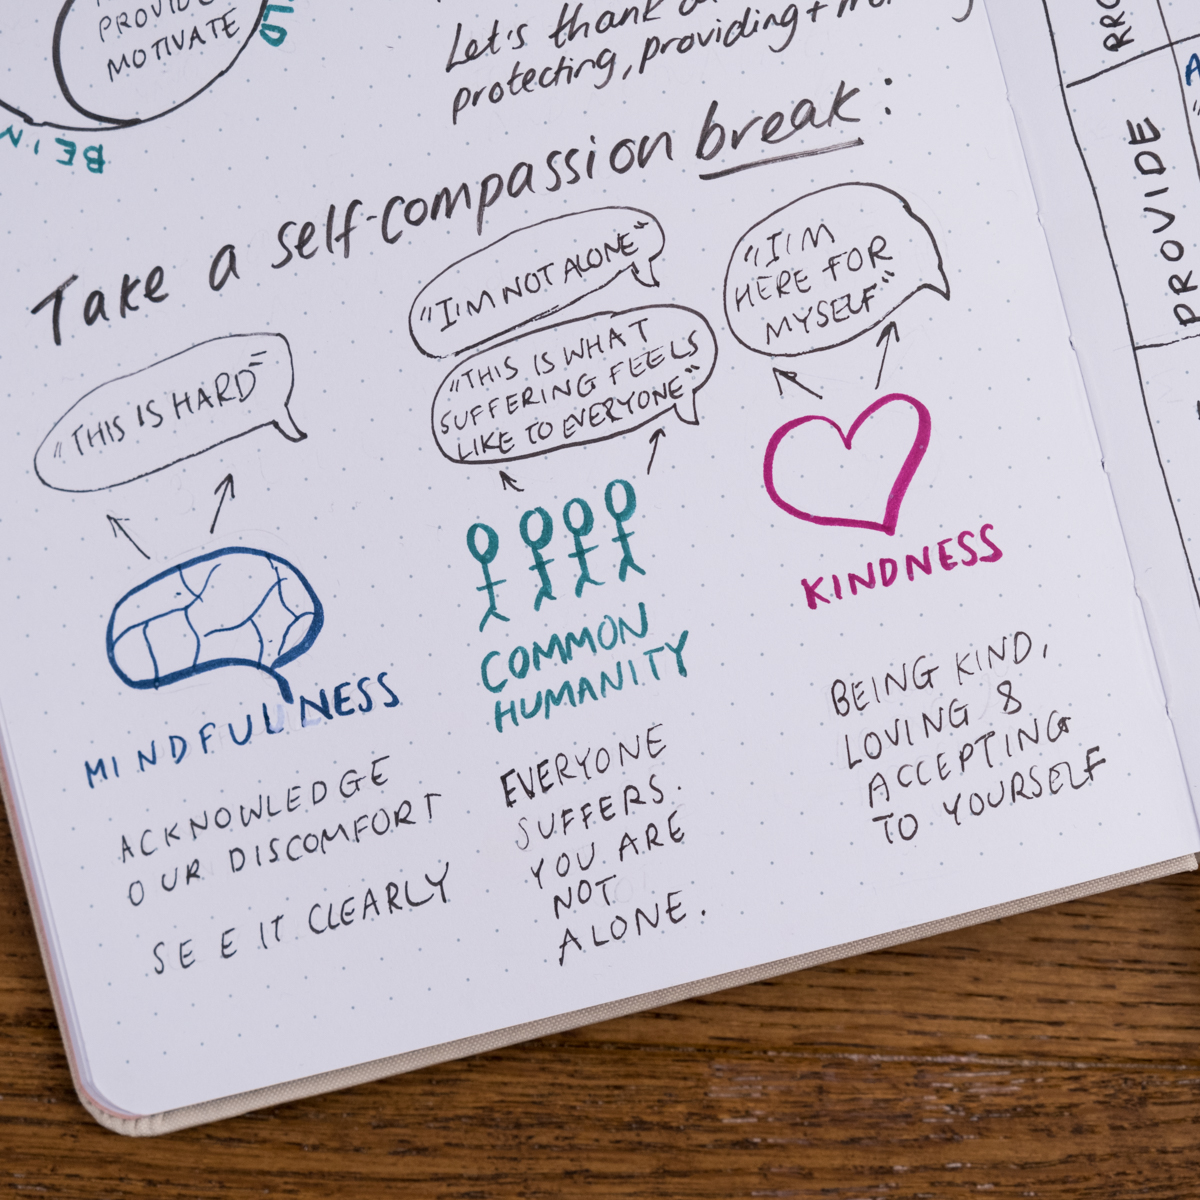 MOTIVATE
Let's thank
protecting, providing +
Take a self-compassion break:
"THIS IS HARD"
"I'M NOT ALONE"
"THIS IS WHAT
SUFFERING FEELS
LIKE TO EVERYONE"
"I'M
HERE FOR
MYSELF"
MINDFULNESS
ACKNOWLEDGE
OUR DISCOMFORT
SEE IT CLEARLY
COMMON
HUMANITY
EVERYONE
SUFFERS.
YOU ARE
NOT
ALONE.
KINDNESS
BEING KIND,
LOVING &
ACCEPTING
TO YOURSELF
PROVIDE